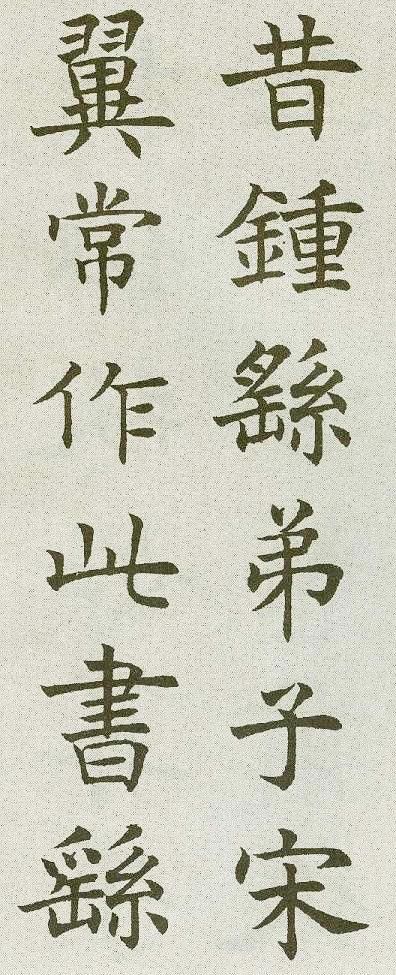 昔鍾繇弟子宋
翼常作此書繇